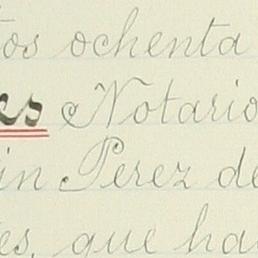 tos ochenta
es Notario
in Perez de
es, que ha